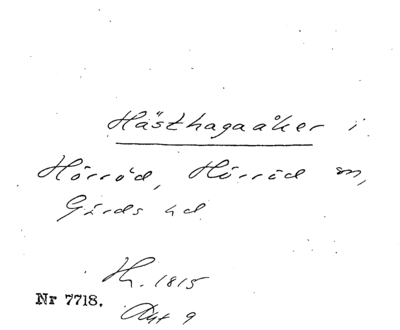 Hästhagaåker i
Hörröd, Hörröd sn,
Gärds hd
H. 1815
Nr 7718.
Akt 9